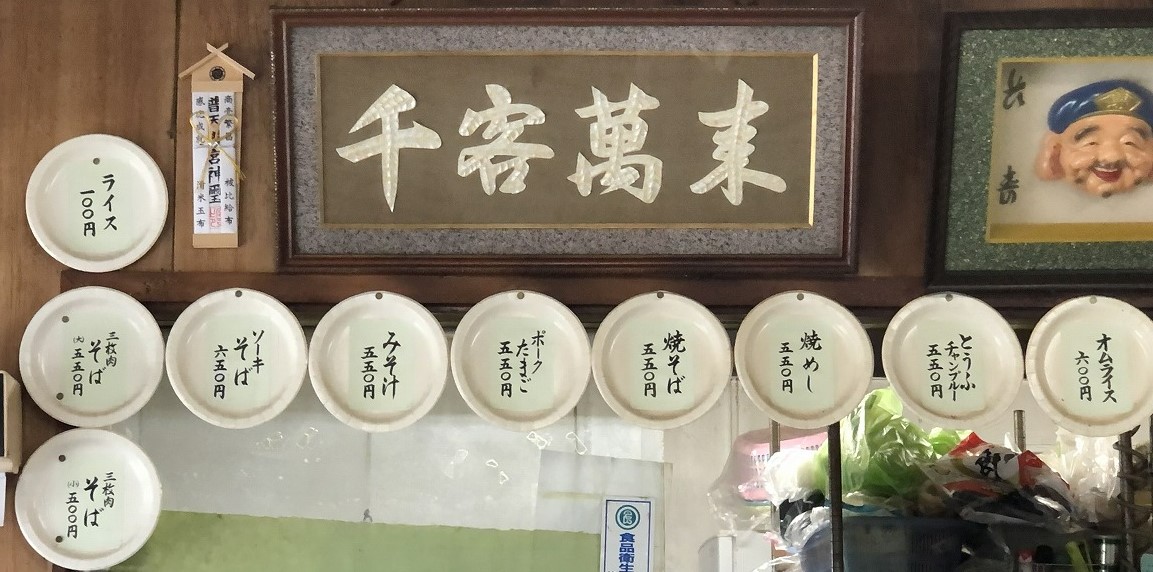 千客萬来
商売繁昌
普天満宮神璽
ライス
一〇〇円
三枚肉
そば
(大)五五〇円
ソーキ
そば
六五〇円
みそ汁
五五〇円
ポーク
たまご
五五〇円
焼そば
五五〇円
焼めし
五五〇円
とうふ
チャンプルー
五五〇円
オムライス
六〇〇円
三枚肉
そば
(小)五〇〇円
食品衛生